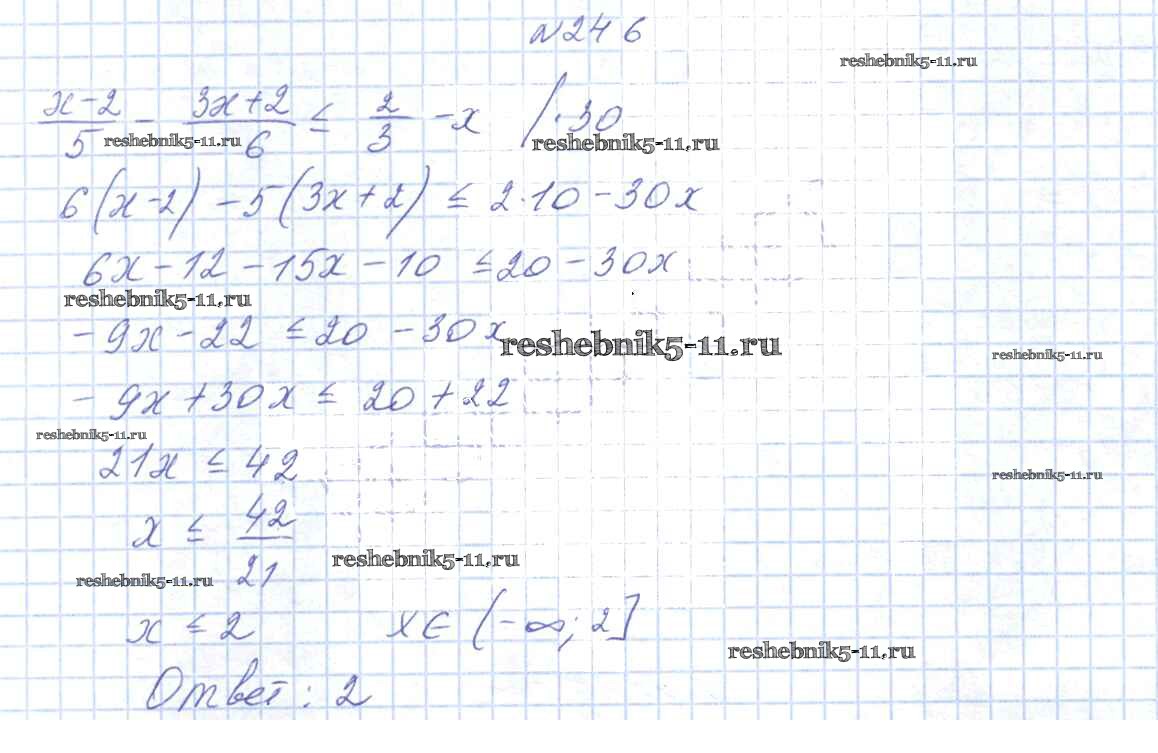 №246
reshebnik5-11.ru
x-2/5 - 3x+2/6 ≤ 2/3 -x /·30
reshebnik5-11.ru reshebnik5-11.ru
6(x-2) -5(3x+2) ≤ 2·10-30x
6x-12-15x-10 ≤20-30x
reshebnik5-11.ru
-9x-22 ≤20-30x
reshebnik5-11.ru
reshebnik5-11.ru
-9x+30x ≤ 20+22
reshebnik5-11.ru
21x ≤ 42
reshebnik5-11.ru
x ≤ 42/21
reshebnik5-11.ru
reshebnik5-11.ru
x ≤ 2 x∈(-∞; 2]
reshebnik5-11.ru
Ответ: 2